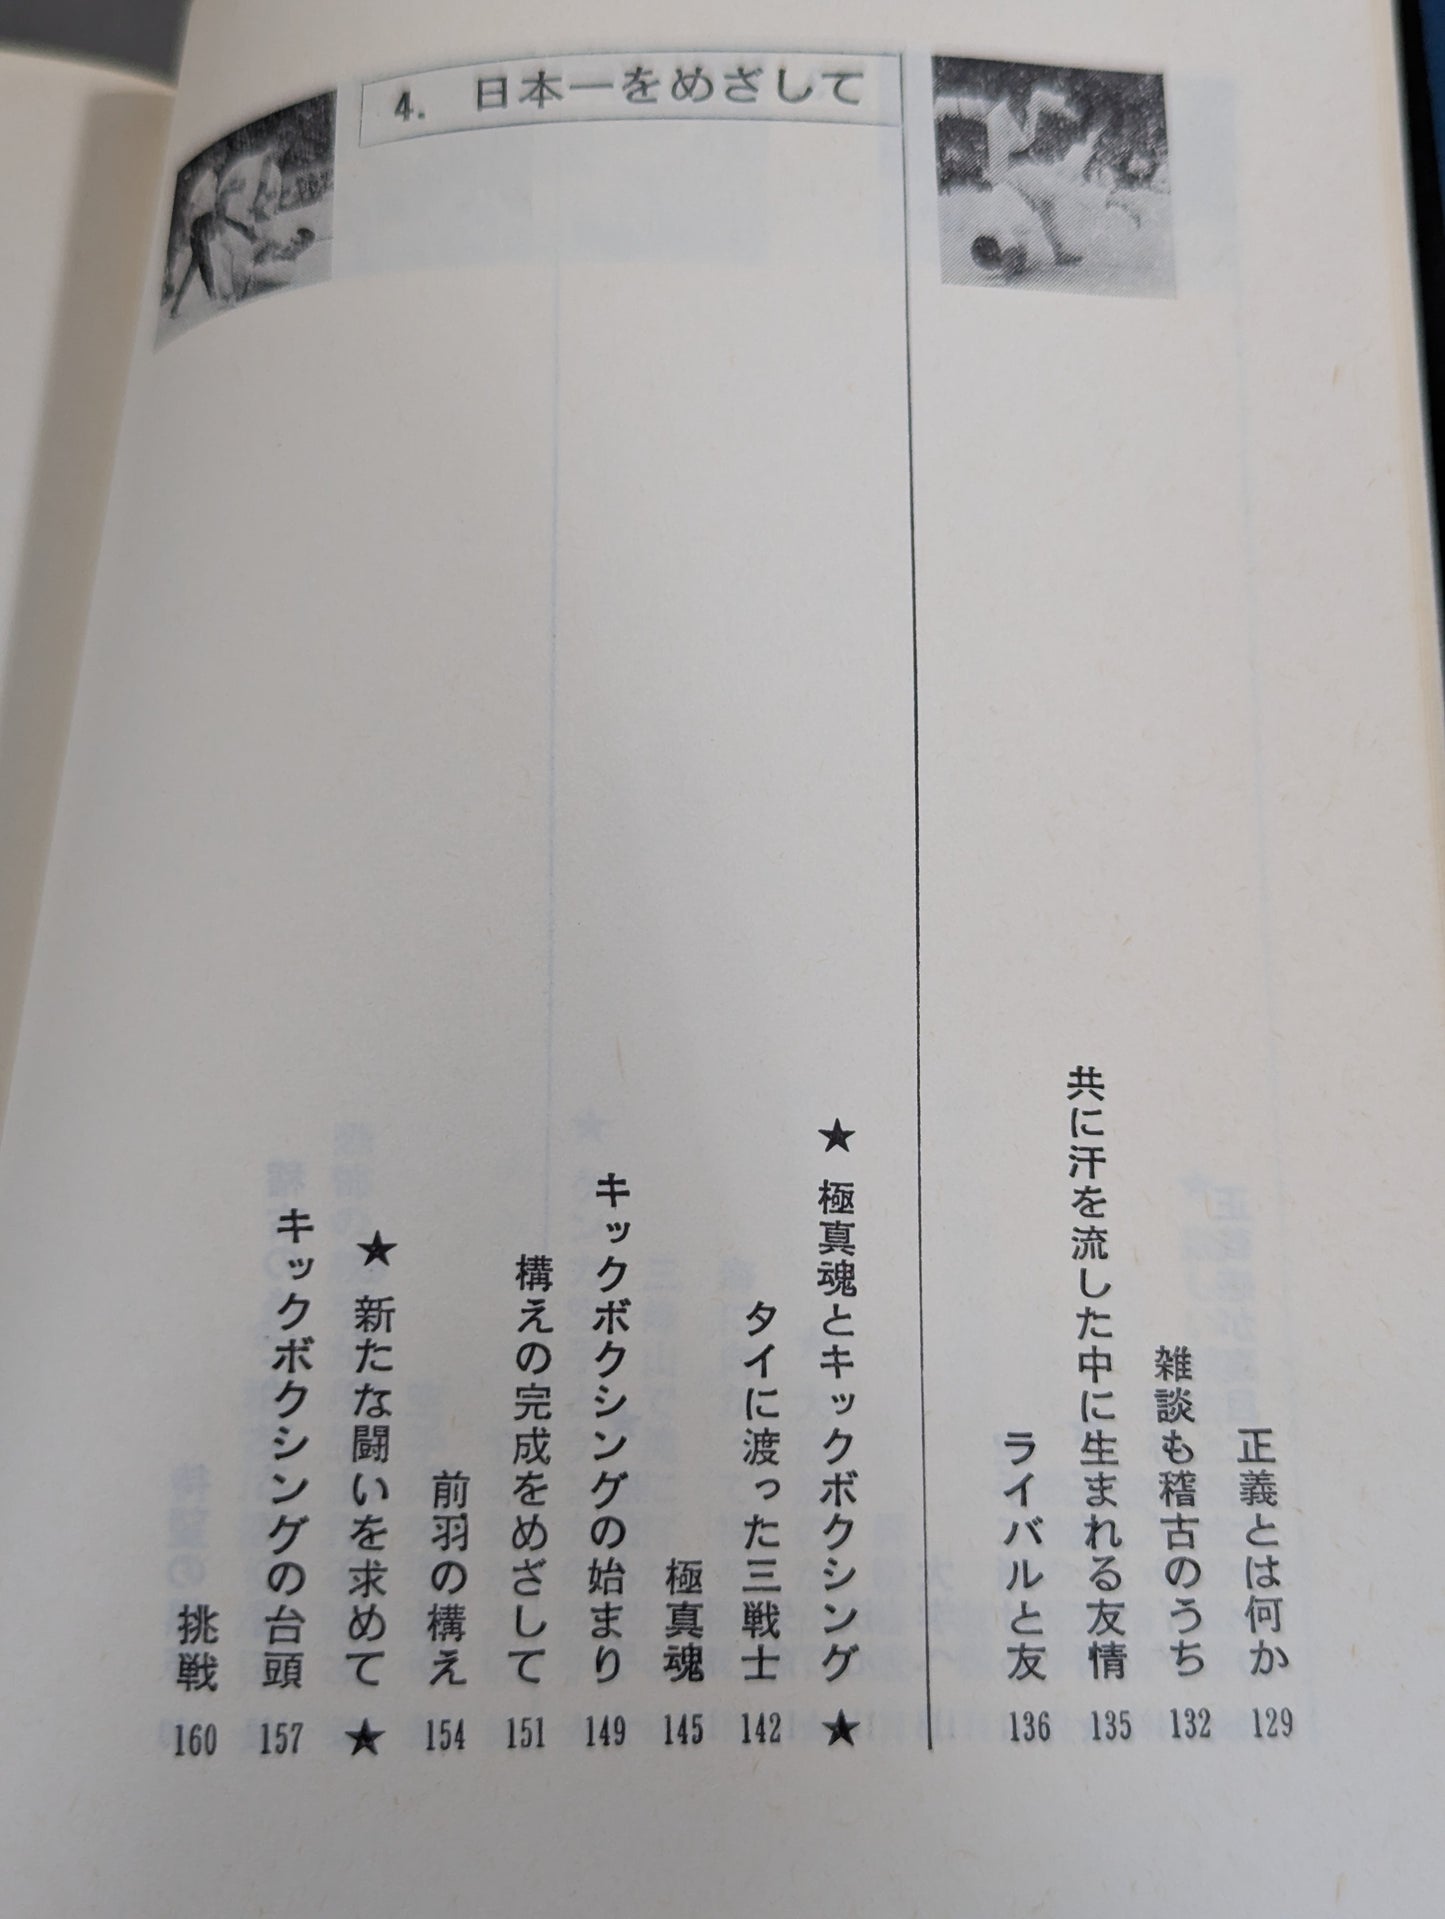 正義とは何か 129
雑談も稽古のうち 132
共に汗を流した中に生まれる友情 135
ライバルと友 136
4. 日本一をめざして
★ 極真魂とキックボクシング ★
タイに渡った三戦士 142
極真魂 145
キックボクシングの始まり 149
構えの完成をめざして 151
前羽の構え 154
★ 新たな闘いを求めて ★
キックボクシングの台頭 157
挑戦 160